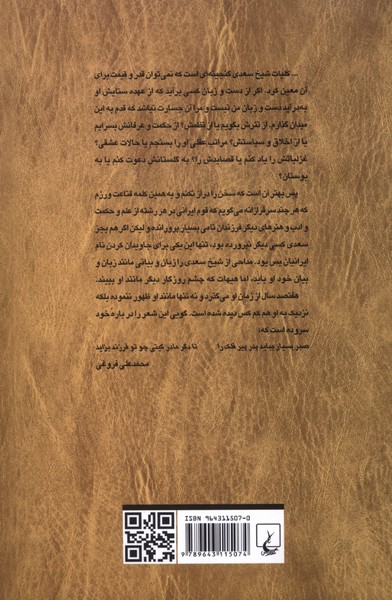 ... کلیات شیخ سعدی گنجینه‌ای است که نمی‌توان قدر و قیمت برای
آن معین کرد. اگر از دست و زبان کسی برآید که از عهده ستایش او
به‌برآید دست و زبان من نیست و مرا آن جسارت نباشد که قدم به این
میدان گذارم. از نثرش بگویم یا از نظمش؟ از حکمت و عرفانش بسرایم
یا از اخلاق و سیاستش؟ مراتب عقلی او را بسنجم یا حالات عشقی؟
غزلیاتش را یاد کنم یا قصایدش را؟ به گلستانش دعوت کنم یا به
بوستان؟
پس بهتر آن است که سخن را دراز نکنم و به همین کلمه قناعت ورزم
که هر چند سرفرازانه می‌گویم که قوم ایرانی در هر رشته از علم و حکمت
و ادب و هنرهای دیگر فرزندان نامی بسیار پرورانده ولیکن اگر هم بجز
سعدی کسی دیگر نپرورده بود، تنها این یکی برای جاویدان کردن نام
ایرانیان بس بود. مداحی از شیخ سعدی را زبان و بیانی مانند زبان و
بیان خود او باید، اما هیهات که چشم روزگار دیگر مانند او بیند.
هفتصد سال از زمان او می‌گذرد و نه تنها مانند او ظهور ننموده بلکه
نزدیک به او هم کم کس دیده شده است. گویی این شعر را در باره خود
سروده است که:
صبر بسیار بباید پدر پیر فلک را تا دگر مادر گیتی چو تو فرزند بزاید
محمدعلی فروغی
ISBN 964311507-0
9 789643 115074